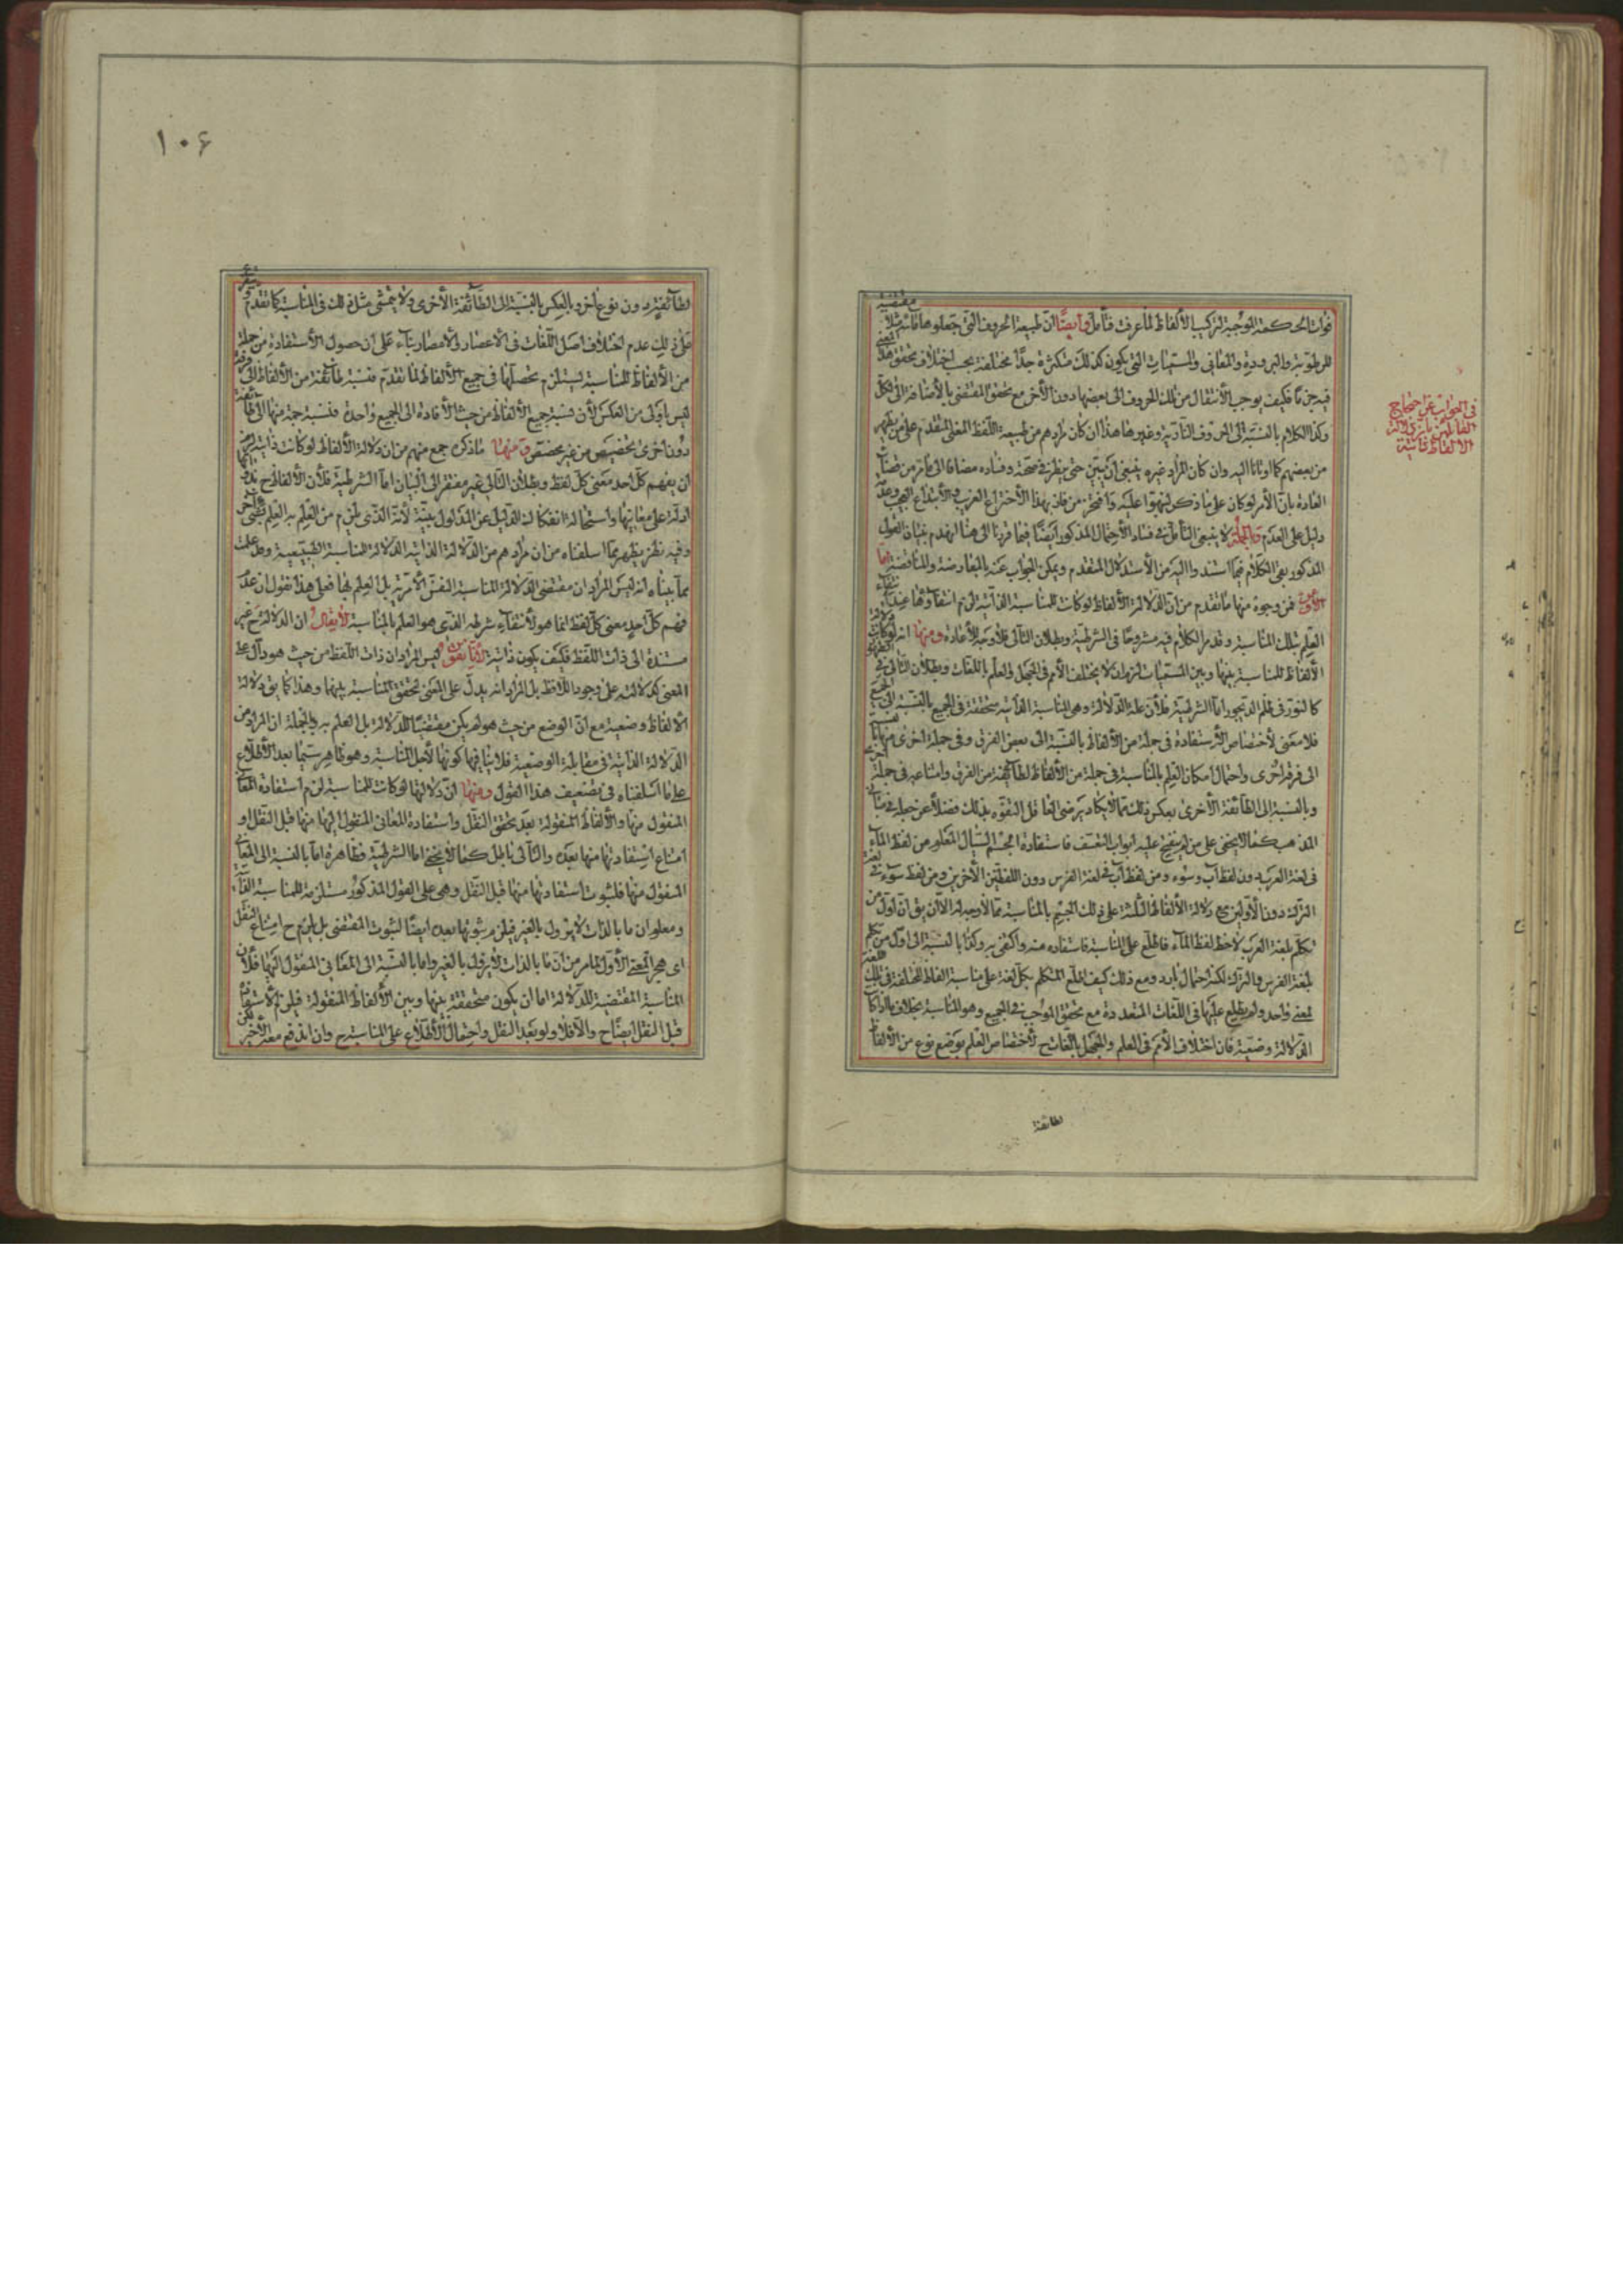 فوات الحكمة الموجبة لتركيب الألفاظ لما عرفت فتأمل وأيضا ان طبيعة الحروف التي جعلوها مقتضية مثلا
للرطوبة والبرودة والمعاني والمسميات التي يكون كذلك متكثرة جدا مختلفة بحسب اختلاف تحقق هذا المعنى
فيه جزما فكيف يوجب الأنتقال من تلك الحروف الى بعضها دون الأخر مع تحقق المقتضي بالأضافة الى الكل
وكذا الكلام بالنسبة الى الحروف النارية وغيرها هذا ان كان مرادهم من طبيعة اللفظ المعنى المتقدم على من يظهر
من بعضهم كما اومأنا اليه وان كان المراد غيره ينبغي أن يبين حتى ينظر في صحته وفساده مضافا الى ما مر من قضاء
العادة بان الأمر لو كان على ما ذكر لنبهوا عليه وافتخر من فاز بهذا الأختراع الغريب والأبتداع العجيب وعدمه
دليل على العدم وبالجملة لا ينبغي التأمل في فساد الأحتمال المذكور ايضا فيما قررنا الى هنا انهدم بنيان القول
المذكور بقي الكلام فيما استندوا اليه من الأستدلال المتقدم ويمكن الجواب عنه بالمعارضة والمناقضة اما
الأولى فمن وجوه منها ما تقدم من ان الدلالة الألفاظ لو كانت للمناسبة الذاتية لزم انتفاؤها عند انتفاء
العلم بتلك المناسبة وقد مر الكلام فيه مشروحا في الشرطية وبطلان التالي فلا وجه للأعادة ومنها انه لو كانت دلالة
الألفاظ للمناسبة بينها وبين المسميات لزم ان لا يختلف الأمم في الجهل والعلم باللغات وبطلان التالي في الظهور
كالنور في ظلم الديجور اما الشرطية فلأن علة الدلالة وهي المناسبة الذاتية متحققة في الجميع بالنسبة الى الجميع
فلا معنى لأختصاص الأستفادة في جملة من الألفاظ بالنسبة الى بعض الفرق وفي جملة اخرى منها بالنسبة
الى فرقة اخرى واحتمال امكان العلم بالمناسبة في جملة من الألفاظ لطائفة من الفرق وامتناعه في جملة اخرى
وبالنسبة الى الطائفة الأخرى بعكس ذلك مما لا يكاد يرضى العاقل التفوه بذلك فضلا عن جعله في مباني
المذهب كما لا يخفى على من لم ينفتح عليه ابواب التعسف فاستفادة الجسم السيال المعلوم من لفظ الماء
في لغة العرب دون لفظ آب وسوء ومن لفظ آب في لغة الفرس دون اللفظين الأخرين ومن لفظ سوء في لغة
الترك دون الأولين مع دلالة الألفاظ الثلثة على ذلك الجسم بالمناسبة مما لا وجه له الا ان يق ان اول من
تكلم بلغة العرب لاحظ لفظ الماء فاطلع على المناسبة فاستفاده منه واكتفى به وكذا بالنسبة الى اول من تكلم
بلغة الفرس والترك لكنه احتمال بارد ومع ذلك كيف اطلع المتكلم بكل لغة على مناسبة الفاظ مختلفة في تلك اللغة
لمعنى واحد ولم يطلع عليها في اللغات المتعددة مع تحقق الموجب في الجميع وهو المناسبة بخلاف ما اذا كان
الدلالة وضعية فان اختلاف الأمم في العلم والجهل باللغات ح لأختصاص العلم بوضع نوع من الألفاظ
لطائفة
في الجواب عن احتجاج
القائلين بان دلالة
الألفاظ ذاتية
١٠۶
لطائفة دون نوع اخر وبالعكس بالنسبة الى الطائفة الأخرى ولا يتمشى مثل ذلك في المناسبة كما تقدم
على ذلك عدم اختلاف اصل اللغات في الأعصار والأمصار بناء على ان حصول الأستفادة من جملة
من الألفاظ للمناسبة يستلزم تحصلها في جميع الألفاظ لما تقدم فنسبة طائفة من الألفاظ الى فرقة
ليس باولى من العكس لأن نسبة جميع الألفاظ من حيث الأفادة الى الجميع واحدة فنسبة جملة منها الى طائفة
دون اخرى تخصيص من غير مخصص ومنها ما ذكره جمع منهم من ان دلالة الألفاظ لو كانت ذاتية لزم
ان يفهم كل احد معنى كل لفظ وبطلان التالي غير مفتقر الى البيان اما الشرطية فلأن الألفاظ ح
ادلة على معانيها واستحالة انفكاك الدليل عن المدلول بينة لأنه الذي يلزم من العلم به العلم بشيء اخر
وفيه نظر يظهر مما اسلفناه من ان مرادهم من الدلالة الذاتية الدلالة للمناسبة الطبيعية وقد علمت
مما بيناه انه ليس المراد ان مقتضى الدلالة المناسبة النفس الأمرية بل العلم بها فعلى هذا نقول ان عدم
فهم كل احد معنى كل لفظ انما هو لأنتفاء شرطه الذي هو العلم بالمناسبة لا يقال ان الدلالة ح غير
مستندة الى ذات اللفظ فكيف يكون ذاتية لأنا نقول ليس المراد ان ذات اللفظ من حيث هو دال على
المعنى كدلالته على وجود اللافظ بل المراد انه يدل على المعنى لتحقق المناسبة بينهما وهذا كما يق دلالة
الألفاظ وضعية مع ان الوضع من حيث هو لم يكن مقتضيا للدلالة بل العلم به وبالجملة ان المراد من
الدلالة الذاتية في مقابلة الوضعية فلا ينافيها كونها لأجل المناسبة وهو ظاهر سيما بعد الأطلاع
على ما اسلفناه في تضعيف هذا القول ومنها ان دلالتها لو كانت للمناسبة لزم استفادة المعاني
المنقول منها والألفاظ المنقولة بعد تحقق النقل واستفادة المعاني المنقول اليها منها قبل النقل او
امتناع استفادتها منها بعده والتالي باطل كما لا يخفى اما الشرطية فظاهرة اما بالنسبة الى المعاني
المنقول منها فلثبوت استفادتها منها قبل النقل وهي على القول المذكور مستلزمة للمناسبة الذاتية
ومعلوم ان ما بالذات لا يزول بالغير فيلزم ثبوتها بعده ايضا لثبوت المقتضي بل يلزم ح امتناع النقل
اي هجر المعنى الأول لما مر من ان ما بالذات لا يزول بالغير واما بالنسبة الى المعاني المنقول اليها فلأن
المناسبة المقتضية للدلالة اما ان يكون متحققة بينها وبين الألفاظ المنقولة فيلزم الأستفادة
قبل النقل ايضا ح والا فلا ولو بعد النقل واحتمال الأطلاع على المناسبة ح وان اندفع معه الأخير لكن